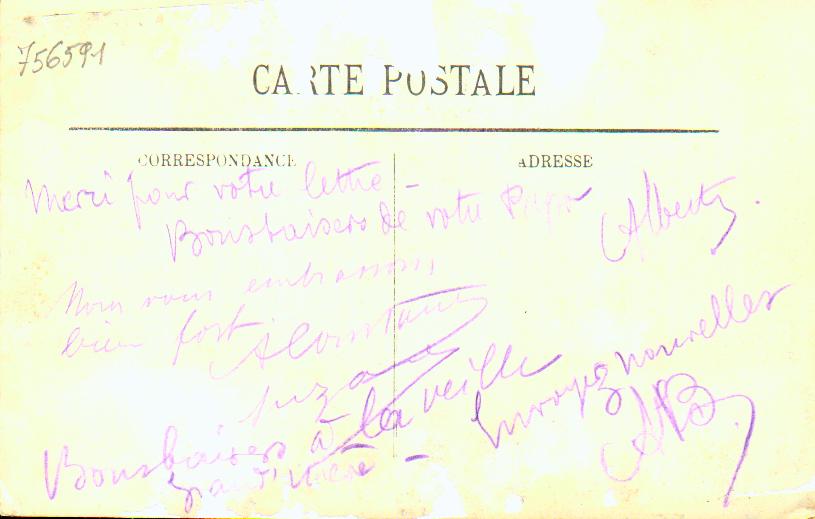 756591
CARTE POSTALE
CORRESPONDANCE
ADRESSE
Merci pour votre lettre -
Bons baisers de votre Papa
Albert.
Nous vous embrassons
bien fort
Bons baisers à la veille
grand'mère - Envoyez nouvelles
AB